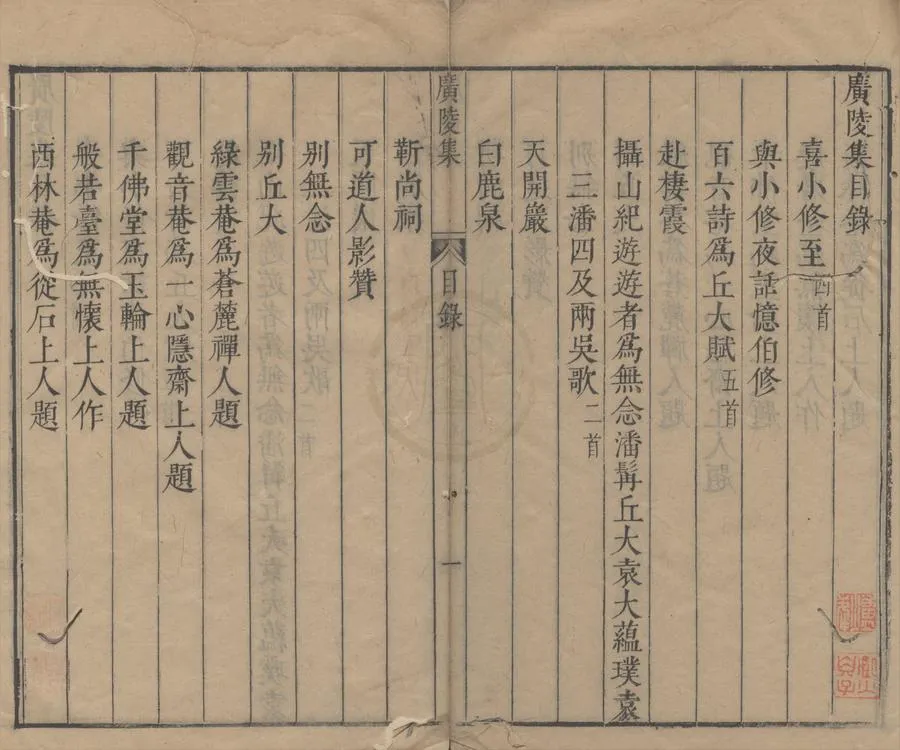 廣陵集目錄
喜小修至四首
與小修夜話憶伯修
百六詩爲丘大賦五首
赴棲霞
攝山紀遊遊者爲無念潘髯丘大袁大蘊璞袁
三潘四及兩吳歌二首
天開巖
白鹿泉
廣陵集 目錄 一
靳尚祠
可道人影贊
別無念
別丘大
綠雲菴爲蒼麓禪人題
觀音菴爲一心隱齋上人題
千佛堂爲玉輪上人題
般若臺爲無懷上人作
西林菴爲從石上人題